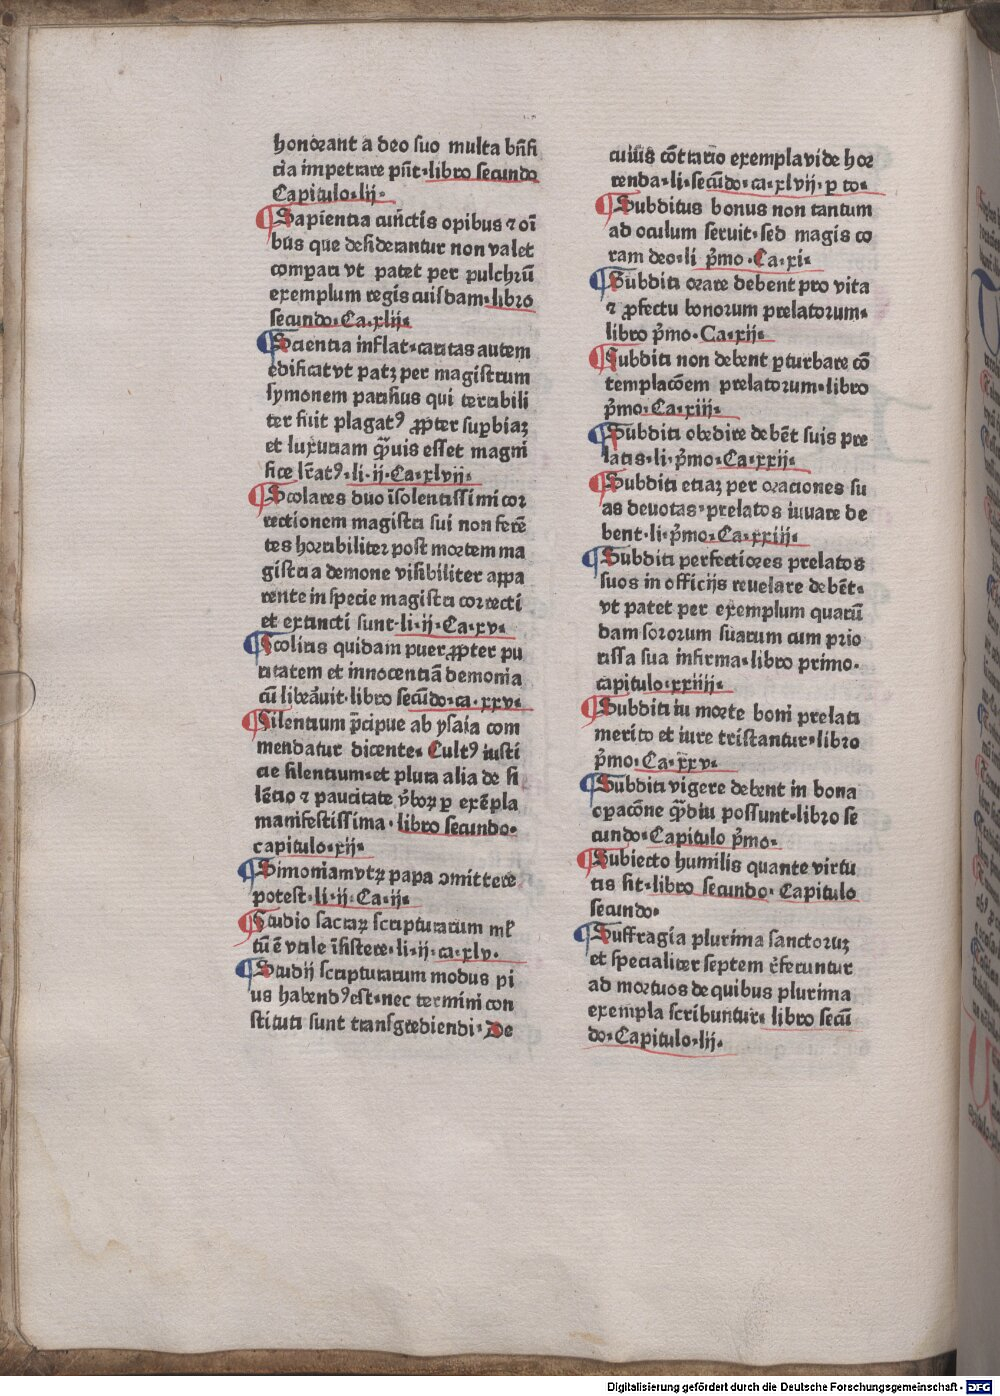 honorant a deo suo multa bn̄fi
cia impetrare pn̄t·libro secundo
Capitulo·lii·
¶Sapientia cūctis opibus ⁊ oī
bus que desiderantur non valet
compari vt patet per pulchrū
exemplum regis cuisdam·libro
secundo·Ca·xlii·
¶Scientia inflat·caritas autem
edificat vt patꝫ per magistrum
symonem parisius qui terribili
ter fuit plagatꝰ ꝓpter suꝑbiaꝫ
et luxuriam qͣuis esset magni
fice lr̄atꝰ·li·ii·Ca·xlvii·
¶Scolares duo īsolentissimi cor
rectionem magistri sui non ferē
tes horribiliter post mortem ma
gistri a demone visibiliter appa
rente in specie magistri correcti
et extincti sunt·li·ii·Ca·xv·
¶Scolaris quidam puer ꝓpter pu
ritatem et innocentiā demonia
cū liberauit·libro secūdo·ca·xxv·
¶Silentium p̄cipue ab ysaia com
mendatur dicente· Cultꝰ iusti
cie silentium·et plura alia de si
lētio ⁊ paucitate v̄boꝝ ꝑ exēpla
manifestissima·libro secundo·
capitulo·xii·
¶Simoniam vtꝝ papa ꝯmittere
potest·li·ii·Ca·ii·
¶Studio sacraꝝ scripturarum ml̄
tū ē vtile īsistere·li·ii·ca·xlv·
¶Studij scripturarum modus pi
us habendꝰ est·nec termini con
stituti sunt transgrediendi·De
cuius cōtrario exempla vide hor
renda·li·secūdo·ca·xlvii·ꝑ to·
¶Subditus bonus non tantum
ad oculum seruit·sed magis co
ram deo·li p̄mo·Ca·xi·
¶Subditi orare debent pro vita
⁊ ꝓfectu bonorum prelatorum·
libro p̄mo·Ca·xii·
¶Subditi non debent ꝑturbare cō
templacōem prelatorum·libro
p̄mo·Ca·xiii·
¶Subditi obedire debēt suis pre
latis·li·p̄mo·Ca·xxii·
¶Subditi etiaꝫ per oraciones su
as deuotas·prelatos iuuare de
bent·li·p̄mo·Ca·xxiii·
¶Subditi perfectiores prelatos
suos in officijs reuelare debēt·
vt patet per exemplum quarū
dam sororum suarum cum prio
rissa sua infirma·libro primo·
capitulo·xxiiii·
¶Subditi iu morte boni prelati
merito et iure tristantur·libro
p̄mo·Ca·xxv·
¶Subditi vigere debent in bona
oꝑacōne qͣdiu possunt·libro se
cundo·Capitulo p̄mo·
¶Subiectio humilis quante virtu
tis sit·libro secundo·Capitulo
secundo·
¶Suffragia plurima sanctoruꝫ
et specialiter septem r̄fecuntur
ad mortuos de quibus plurima
exempla scribuntur·libro secū
do·Capitulo·lii·
Digitalisierung gefördert durch die Deutsche Forschungsgemeinschaft - DFG